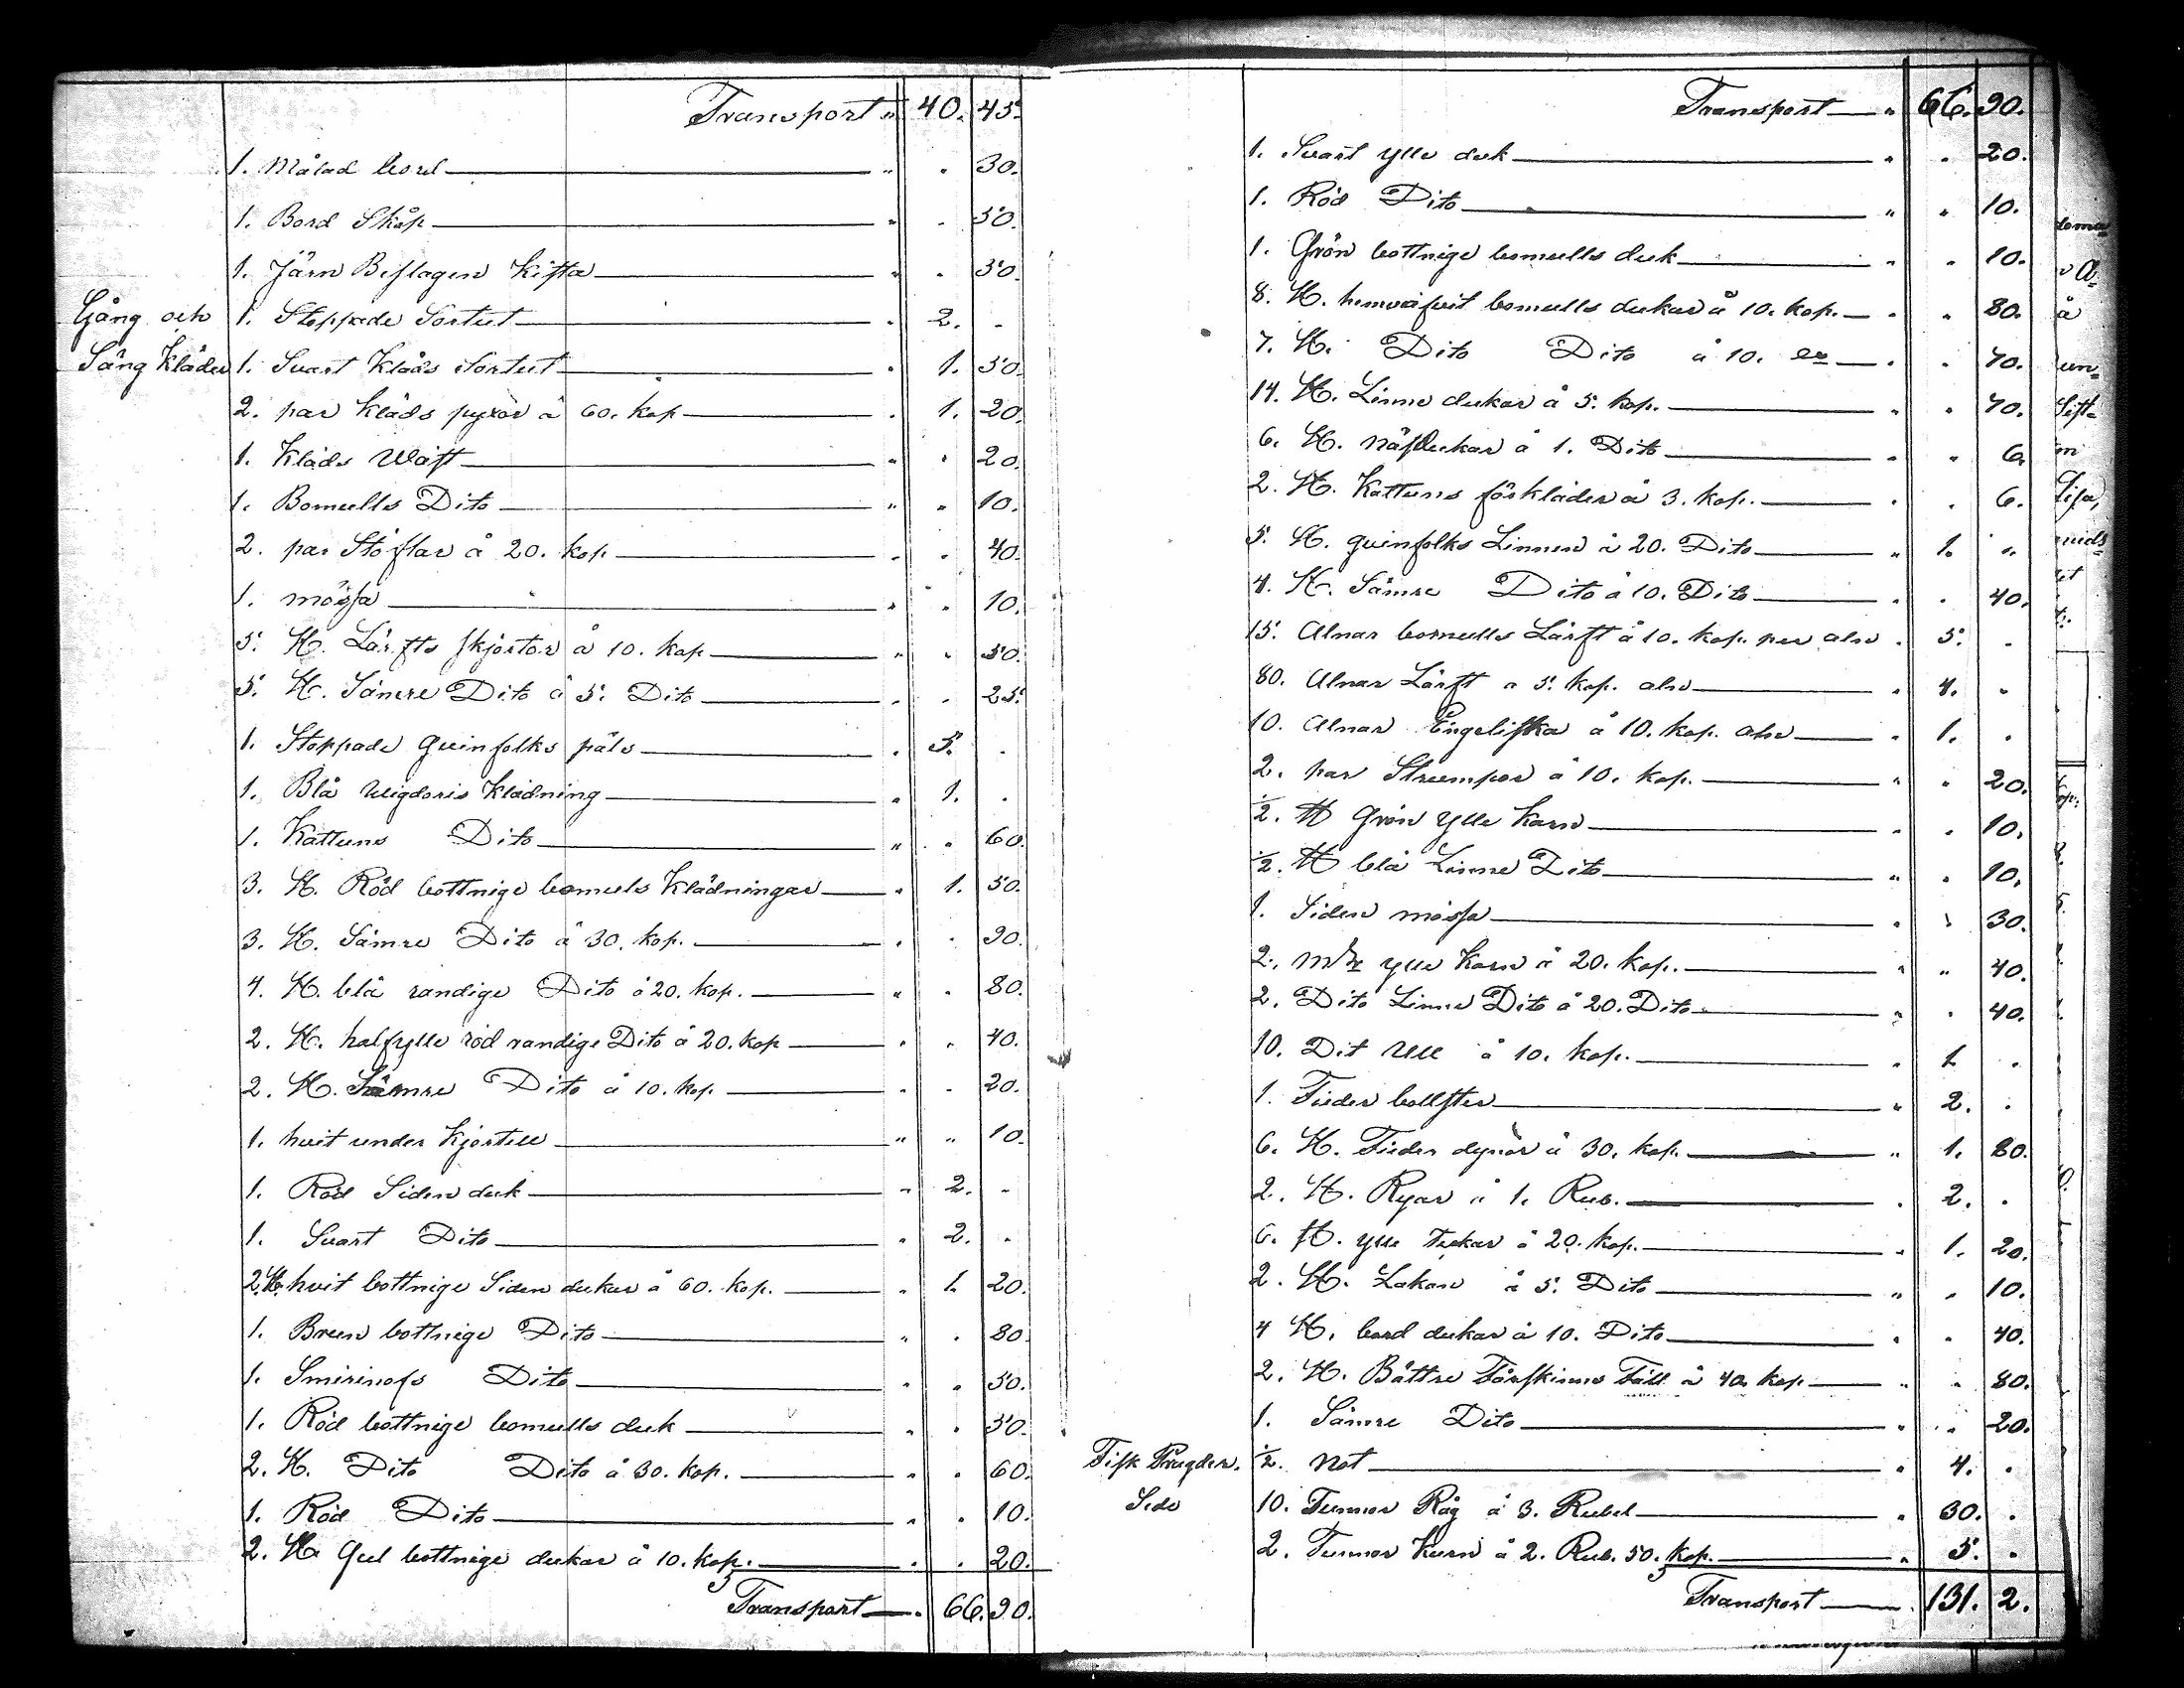 Transport " 40. 45.
1. Målad bord " . 30.
1. Bord Skåp " . 50.
1. Järn Beslagen Kista " . 30.
Gång och 1. Stoppade Sortut " 2. .
Säng Kläder 1. Svart Kläds Sortut " 1. 50.
2. par Kläds pyxor à 60. kop " 1. 20.
1. Kläds Wäst " . 20.
1. Bomulls Dito " . 10.
2. par Stöflar à 20. kop " . 40.
1. mössa " . 10.
5. St. Lärfts skjortor à 10. kop " . 50.
5. St. Sämre Dito à 5. Dito " . 25.
1. Stoppade qvinfolks päls " 5. .
1. Blå Klädning " 1. .
1. Kattuns Dito " . 60.
3. St. Röd bottnige bomuls Klädningar " 1. 50.
3. St. Sämre Dito à 30. kop. " . 90.
4. St. blå randige Dito à 20. kop. " . 80.
2. St. halfylle röd randige Dito à 20. kop " . 40.
2. St. Sämre Dito à 10. kop. " . 20.
1. hvit under Kjortell " " 10.
1. Röd Siden duk " 2. .
1. Svart Dito " 2. .
2. St. hvit bottnige Siden dukar à 60. kop. " 1. 20.
1. Brun bottnige Dito " . 80.
1. Smirinofs Dito " . 50.
1. Röd bottnige bomulls duk " . 30.
2. St. Dito Dito à 30. kop. " . 60.
1. Röd Dito " . 10.
2. St. Gul bottnige dukar à 10. kop. " . 20.
Transport " 66. 90.
Transport " 66. 90.
1. Svart ylle duk " . 20.
1. Röd Dito " . 10.
1. Grön bottnige bomulls duk " . 10.
8. St. bomulls dukar à 10. kop. " . 80.
7. St. Dito Dito à 10. " . 70.
14. St. Linne dukar à 5. kop. " . 70.
6. St. näsdukar à 1. Dito " . 6.
2. St. Kattuns förkläder à 3. kop. " . 6.
5. St. qvinfolks Linnen à 20. Dito " 1. "
4. St. Sämre Dito à 10. Dito " . 40.
15. Alnar bomulls Lärft à 10. kop. per aln " 5. .
80. Alnar Lärft a 5. kop. aln " 4. .
10. Alnar Engelska à 10. kop. aln " 1. .
2. par Strumpor à 10. kop. " . 20.
1/2. ℔ Grön ylle Karn " . 10.
1/2. ℔ blå Linne Dito " . 10.
1. Siden mössa " . 30.
2. ylle Karn à 20. kop. " " 40.
2. Dito Linne Dito à 20. Dito " . 40.
10. Dit Ull à 10. kop. " 1. .
1. Fieder bollster " 2. .
6. St. Fieder dynor à 30. kop. " 1. 80.
2. St. Ryar à 1. Rub. " 2. .
6. St. ylle Teckar à 20. kop. " 1. 20.
2. St. Lakan à 5. Dito " . 10.
4 St. bord dukar à 10. Dito " . 40.
2. St. Bättre Fårskinns Fäll à 40. kop " . 80.
1. Sämre Dito " . 20.
Fisk Brugder. 1/2. Not " 4. .
Sedo 10. Tunnor Råg à 3. Rubel " 30. .
2. Tunnor Kurn à 2. Rub. 50. kop. " 5. .
Transport " 131. 2.